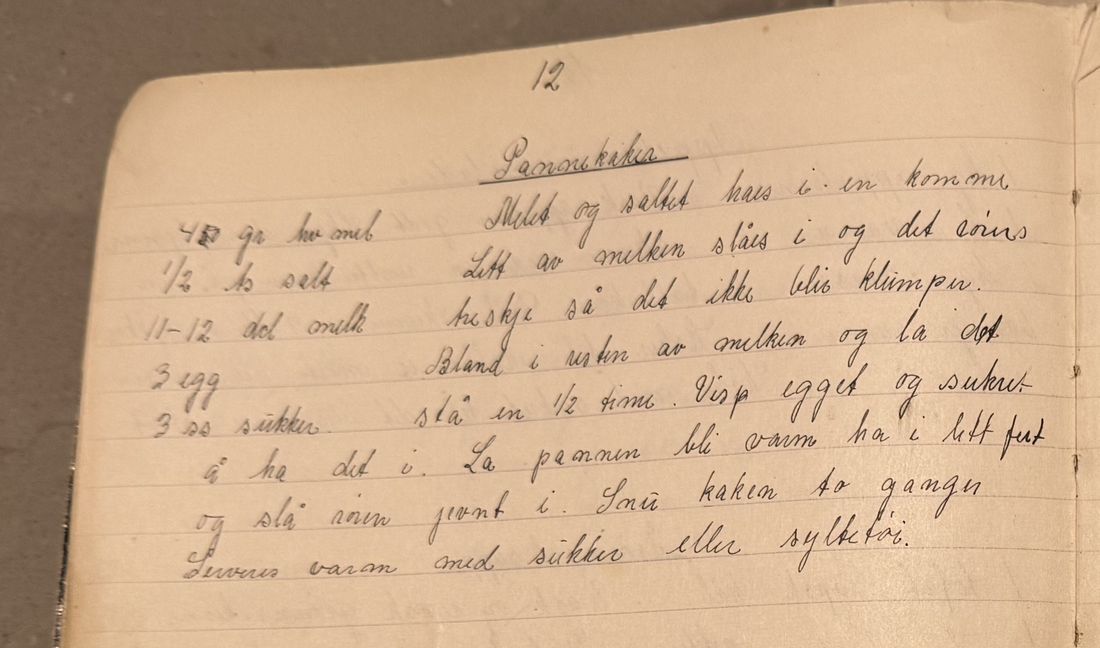 12
Pannekaker
gr hv mel Melet og saltet haes i en komme
1/2 ts salt Litt av melken slåes i og det röires
11-12 del melk treskje så det ikke blir klumper.
3 egg Bland i resten av melken og la det
3 ss sukker. stå en 1/2 time. Visp egget og sukret
å ha det i. La pannen bli varm ha i litt fett
og slå rören jevnt i. Snu kaken to ganger
Serveres varm med sukker eller syltetöi.